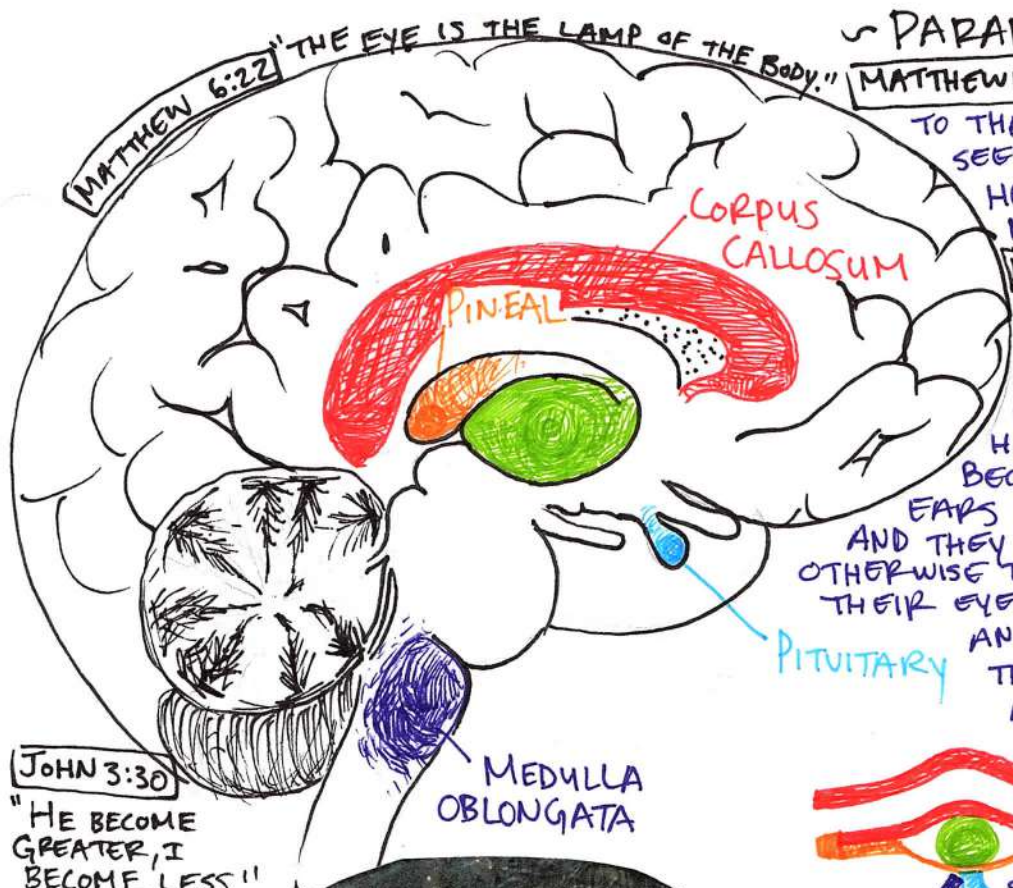 MATTHEW 6:22 "THE EYE IS THE LAMP OF THE BODY."
~ PARA
MATTHEW
TO THA
SEE
H
CORPUS
CALLOSUM
PINEAL
H
BEC
EARS
AND THEY
OTHERWISE T
THEIR EYE
AN
TH
PITUITARY
MEDULLA
OBLONGATA
JOHN 3:30
"HE BECOME
GREATER, I
BECOME LESS"